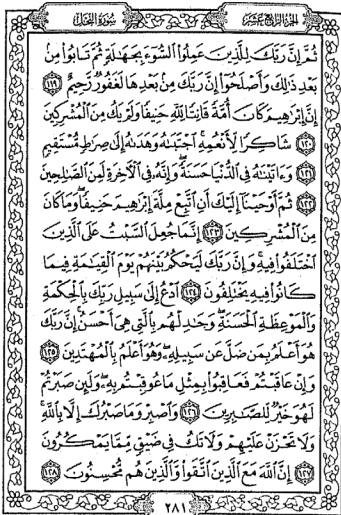 الجزء الرابع عشر
سورة النحل
ثُمَّ إِنَّ رَبَّكَ لِلَّذِينَ عَمِلُوا۟ ٱلسُّوٓءَ بِجَهَٰلَةٍ ثُمَّ تَابُوا۟ مِنۢ
بَعْدِ ذَٰلِكَ وَأَصْلَحُوٓا۟ إِنَّ رَبَّكَ مِنۢ بَعْدِهَا لَغَفُورٌ رَّحِيمٌ ١١٩
إِنَّ إِبْرَٰهِيمَ كَانَ أُمَّةً قَانِتًا لِّلَّهِ حَنِيفًا وَلَمْ يَكُ مِنَ ٱلْمُشْرِكِينَ
١٢٠ شَاكِرًا لِّأَنْعُمِهِ ٱجْتَبَىٰهُ وَهَدَىٰهُ إِلَىٰ صِرَٰطٍ مُّسْتَقِيمٍ
١٢١ وَءَاتَيْنَٰهُ فِى ٱلدُّنْيَا حَسَنَةً وَإِنَّهُۥ فِى ٱلْءَاخِرَةِ لَمِنَ ٱلصَّٰلِحِينَ
١٢٢ ثُمَّ أَوْحَيْنَآ إِلَيْكَ أَنِ ٱتَّبِعْ مِلَّةَ إِبْرَٰهِيمَ حَنِيفًا وَمَا كَانَ
مِنَ ٱلْمُشْرِكِينَ ١٢٣ إِنَّمَا جُعِلَ ٱلسَّبْتُ عَلَى ٱلَّذِينَ
ٱخْتَلَفُوا۟ فِيهِ وَإِنَّ رَبَّكَ لَيَحْكُمُ بَيْنَهُمْ يَوْمَ ٱلْقِيَٰمَةِ فِيمَا
كَانُوا۟ فِيهِ يَخْتَلِفُونَ ١٢٤ ٱدْعُ إِلَىٰ سَبِيلِ رَبِّكَ بِٱلْحِكْمَةِ
وَٱلْمَوْعِظَةِ ٱلْحَسَنَةِ وَجَٰدِلْهُم بِٱلَّتِى هِىَ أَحْسَنُ إِنَّ رَبَّكَ
هُوَ أَعْلَمُ بِمَن ضَلَّ عَن سَبِيلِهِ وَهُوَ أَعْلَمُ بِٱلْمُهْتَدِينَ ١٢٥
وَإِنْ عَاقَبْتُمْ فَعَاقِبُوا۟ بِمِثْلِ مَا عُوقِبْتُم بِهِ وَلَئِن صَبَرْتُمْ
لَهُوَ خَيْرٌ لِّلصَّٰبِرِينَ ١٢٦ وَٱصْبِرْ وَمَا صَبْرُكَ إِلَّا بِٱللَّهِ
وَلَا تَحْزَنْ عَلَيْهِمْ وَلَا تَكُ فِى ضَيْقٍ مِّمَّا يَمْكُرُونَ
١٢٧ إِنَّ ٱللَّهَ مَعَ ٱلَّذِينَ ٱتَّقَوا۟ وَّٱلَّذِينَ هُم مُّحْسِنُونَ ١٢٨
٢٨١